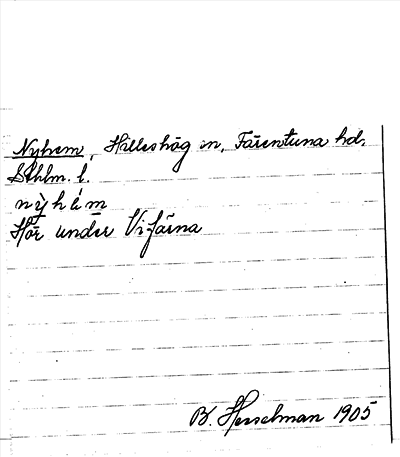 Nyhem, Hilleshög sn, Färentuna hd,
Sthlm. l.
nỳhém
Hör under Vifärna
B. Hesselman 1905